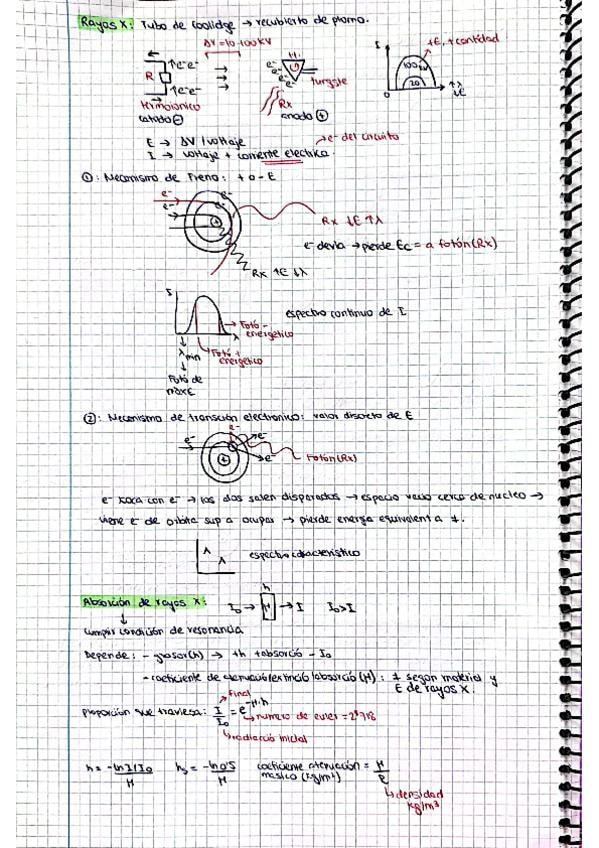 Rayos X: Tubo de Coolidge → recubierto de plomo.
ΔV = 10-100 KV
↑e⁻e⁻
R
↑e⁻e⁻
Rx
cátodo ⊖
ánodo ⊕
I
+E, + cantidad
100
20
0
E → ΔV / voltaje
→ e⁻ del circuito
I → voltaje + corriente electrica.
①: Mecanismo de Freno: + o - E
e⁻
e⁻
Rx ↓E ↑λ
e⁻ desvia → pierde Ec = a fotón (Rx)
Rx ↑E ↓λ
espectro continuo de I
→ Fotó -
energético
λ min
→ Fotó +
energético
Fotó de
máx E
②: Mecanismo de transición electronico: valor discreto de E
e⁻
e⁻
e⁻
e⁻
Fotón (Rx)
e⁻ xoca con e⁻ → los dos salen disparados → espacio vacio cerca de nucleo →
viene e⁻ de orbita sup a ocupar → pierde energia equivalent a f.
λ
λ
espectro característico
Absorción de rayos X:
h
I₀ → μ → I
I₀ > I
Cumplir condición de resonancia
Depende: - grosor (h) → +h + absorció - I₀
- coeficiente de atenuació/extinció/absorció (μ): ≠ segon material y
E de rayos X.
Final
proporción que traviesa: I/I₀ = e^-μ·h
→ numero de euler = 2'718
→ radiació inicial
h = -ln I/I₀ / μ
h½ = -ln 0'5 / μ
coeficiente atenuación = μ/ρ
másico (kg/m²)
→ densidad
kg/m³